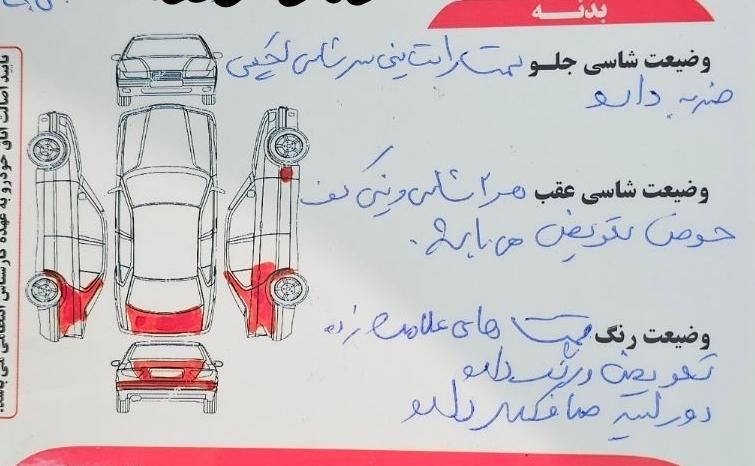 بدنه
وضعیت شاسی جلو سمت راست سرشاسی
ضربه دارد
وضعیت شاسی عقب هر ۲ شاسی و نیز کف
حوض تعویض می باشد.
وضعیت رنگ قسمت های علامت زده
تعویض و رنگ دارد
دور گلگیر صافکاری دارد
تایید اصالت اتاق خودرو به عهده کارشناس انتظامی می باشد.